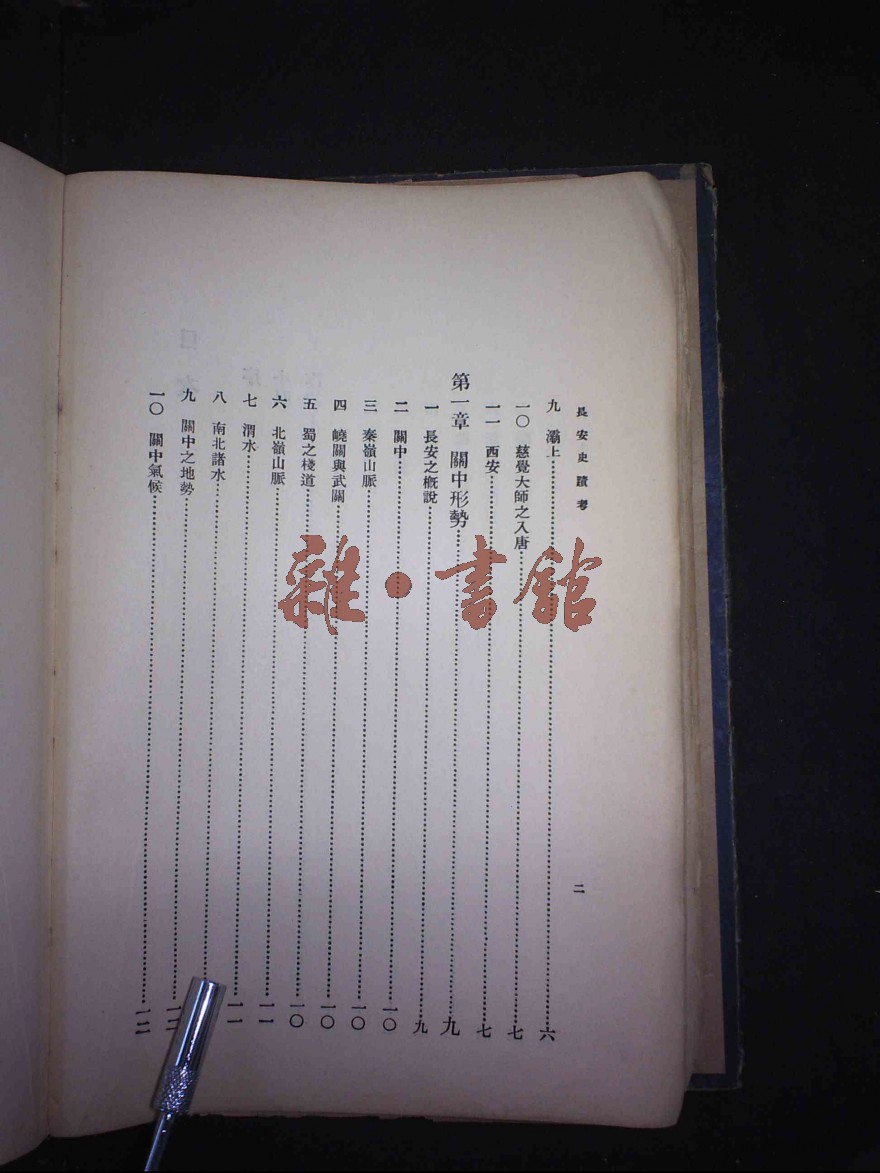 長安史蹟考
二
九 灞上……六
一〇 慈覺大師之入唐……七
一一 西安……七
第一章 關中形勢……九
一 長安之概說……九
二 關中……一〇
三 秦嶺山脈……一〇
四 嶢關與武關……一〇
五 蜀之棧道……一〇
六 北嶺山脈……一一
七 渭水……一一
八 南北諸水……
九 關中之地勢……一二
一〇 關中氣候……一二
雜·書館